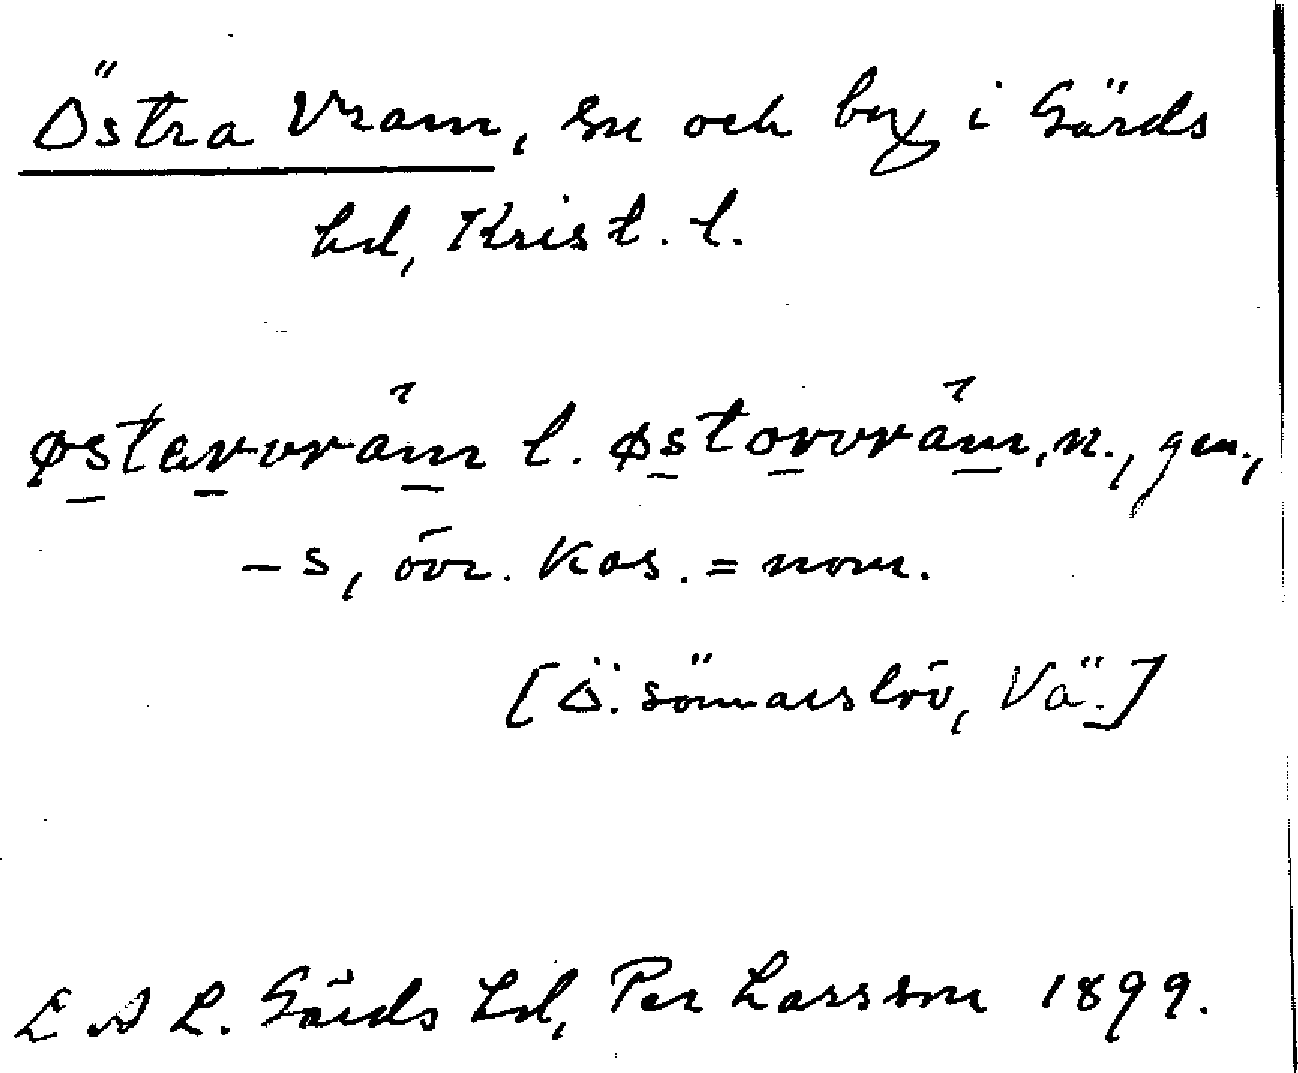 Östra Vram, sn och by i Gärds
hd, Krist. l.
østərvrám l. østorvrám, n., gen.,
-s, övr. kas. = nom.
[Ö. Sönnarslöv, Vä.]
L A L. Gärds hd, Per Larsson 1899.